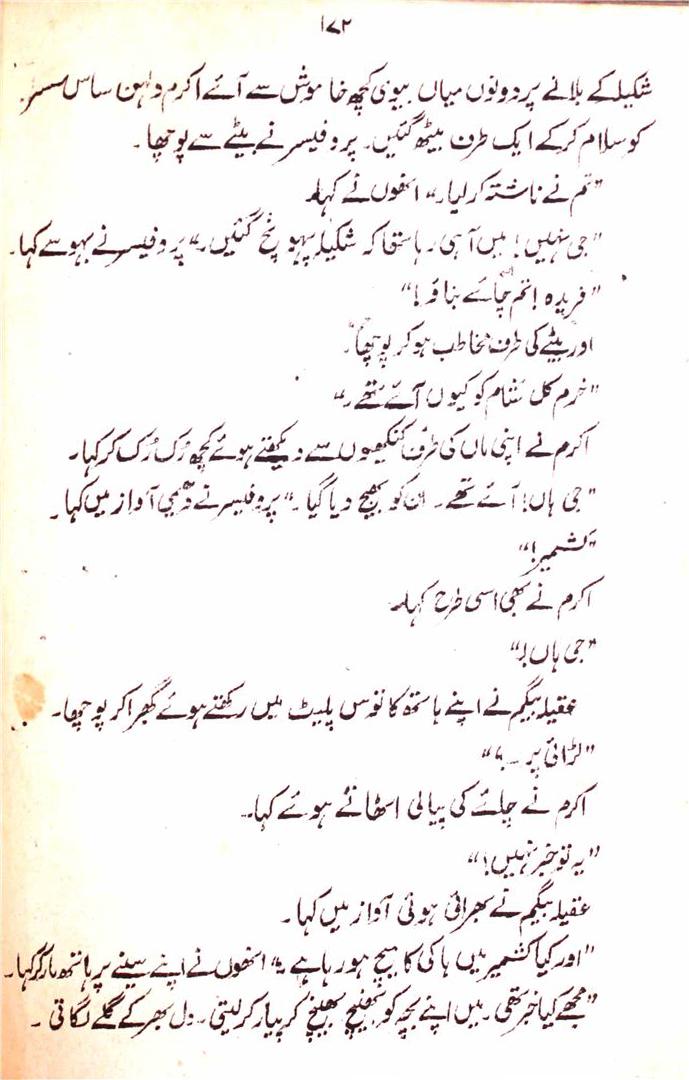 ۱۷۲
شکیلہ کے بلانے پر دونوں میاں بیوی کچھ خاموش سے آئے اکرم دلہن ساس سسر
کو سلام کر کے ایک طرف بیٹھ گئیں۔ پروفیسر نے بیٹے سے پوچھا۔
"تم نے ناشتہ کر لیا۔" انھوں نے کہا۔
"جی نہیں! میں آ ہی رہا تھا کہ شکیلہ پہونچ گئیں۔" پروفیسر نے بہو سے کہا۔
"فریدہ! تم چائے بناؤ!"
اور بیٹے کی طرف مخاطب ہو کر پوچھا۔
"خرم کل شام کو کیوں آئے تھے۔"
اکرم نے اپنی ماں کی طرف کنکھیوں سے دیکھتے ہوئے کچھ رُک رُک کر کہا۔
"جی ہاں! آئے تھے۔ ان کو بھیج دیا گیا۔" پروفیسر نے دھیمی آواز میں کہا۔
"کشمیر!"
اکرم نے بھی اسی طرح کہا۔
"جی ہاں!"
عقیلہ بیگم نے اپنے ہاتھ کا توس پلیٹ میں رکھتے ہوئے گھبرا کر پوچھا۔
"لڑائی پر۔؟"
اکرم نے چائے کی پیالی اٹھاتے ہوئے کہا۔
"یہ تو خبر نہیں!"
عقیلہ بیگم نے بھرائی ہوئی آواز میں کہا۔
"اور کیا کشمیر میں ہاکی کا میچ ہو رہا ہے۔" انھوں نے اپنے سینے پر ہاتھ مار کر کہا۔
"مجھے کیا خبر تھی۔ میں اپنے بچہ کو بھینچ بھینچ کر پیار کر لیتی۔ دل بھر کے گلے لگاتی۔